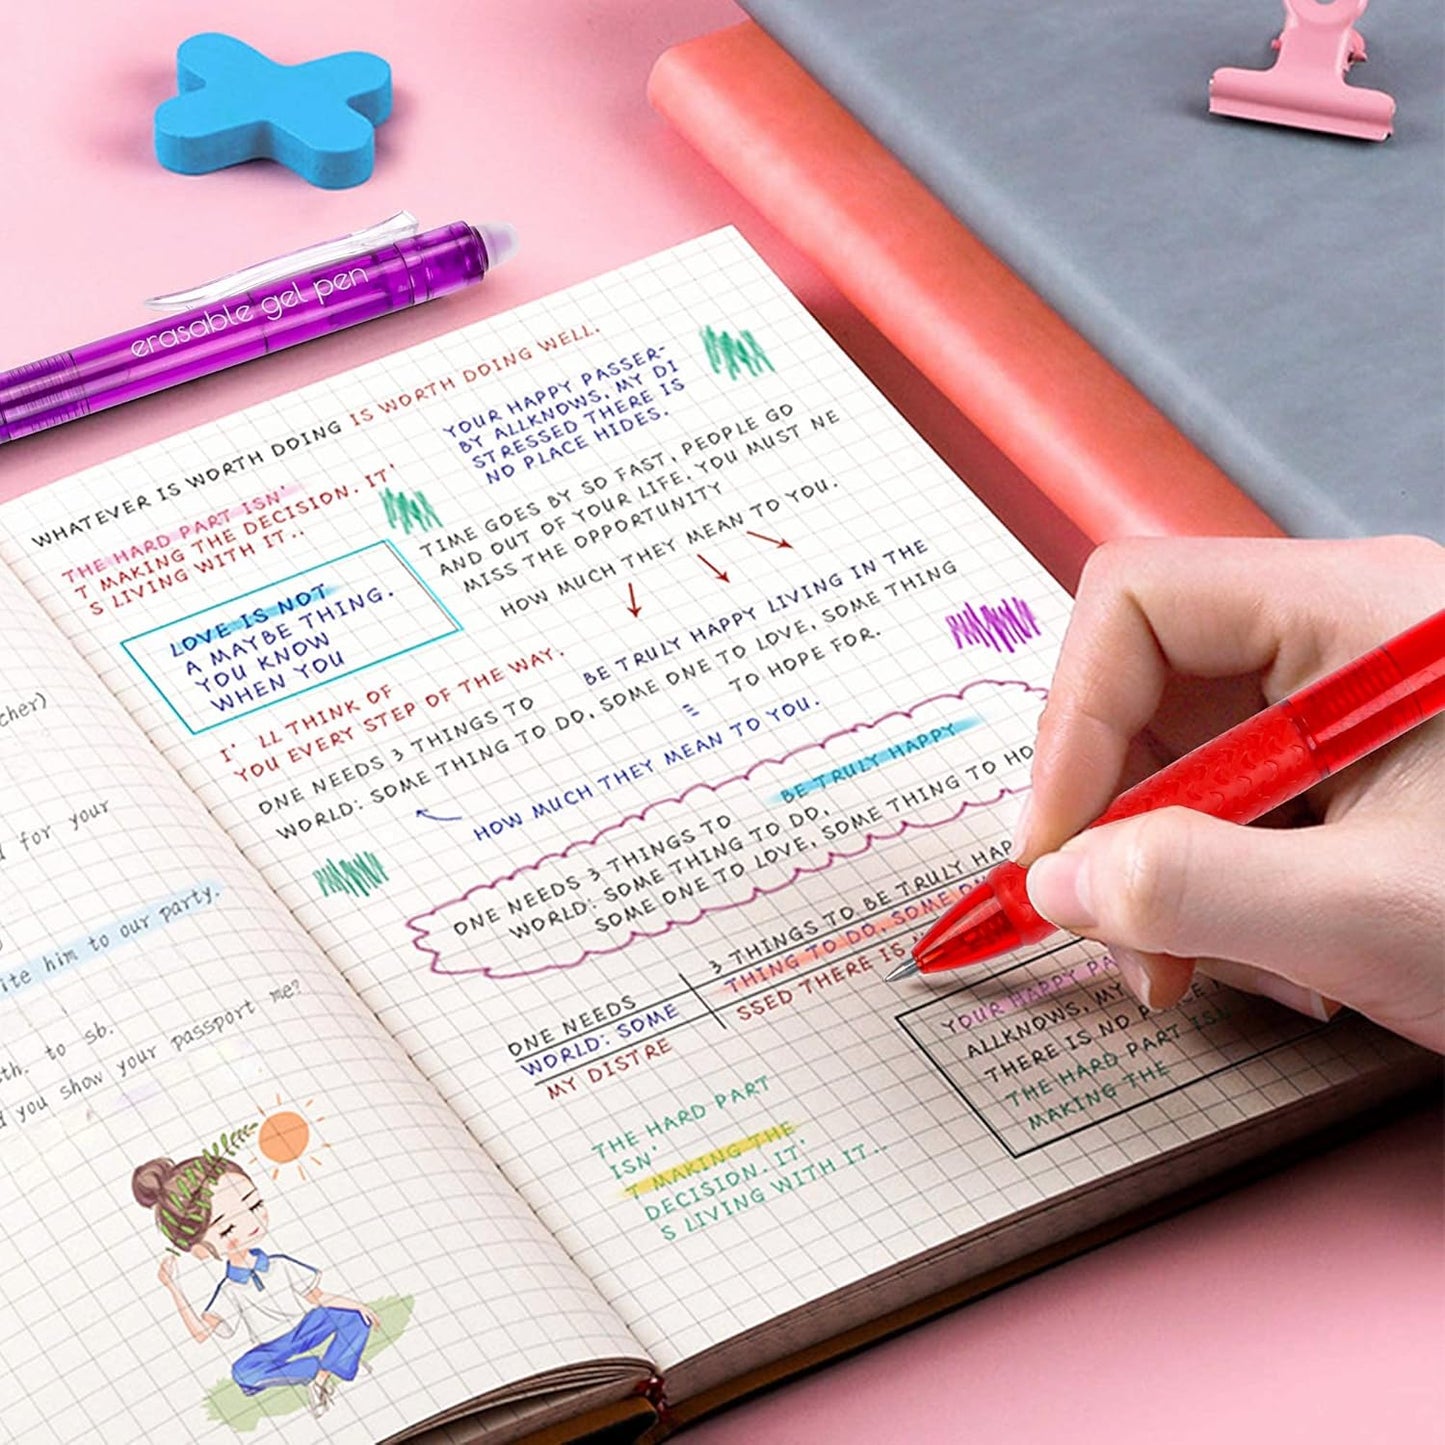 erasable gel pen
WHATEVER IS WORTH DOING IS WORTH DOING WELL.
THE HARD PART ISN'
T MAKING THE DECISION. IT'
S LIVING WITH IT..
YOUR HAPPY PASSER-
BY ALLKNOWS, MY DI
STRESSED THERE IS
NO PLACE HIDES.
TIME GOES BY SO FAST, PEOPLE GO
AND OUT OF YOUR LIFE. YOU MUST NE
MISS THE OPPORTUNITY
HOW MUCH THEY MEAN TO YOU.
LOVE IS NOT
A MAYBE THING.
YOU KNOW
WHEN YOU
I' LL THINK OF
YOU EVERY STEP OF THE WAY.
BE TRULY HAPPY LIVING IN THE
ONE NEEDS 3 THINGS TO
WORLD: SOME THING TO DO, SOME ONE TO LOVE, SOME THING
TO HOPE FOR.
HOW MUCH THEY MEAN TO YOU.
BE TRULY HAPPY
ONE NEEDS 3 THINGS TO
WORLD: SOME THING TO DO,
SOME ONE TO LOVE, SOME THING TO HO
3 THINGS TO BE TRULY HAP
THING TO DO, SOME ON
SSED THERE IS
ONE NEEDS
WORLD: SOME
MY DISTRE
YOUR HAPPY PA
ALLKNOWS, MY
THERE IS NO
THE HARD PART ISN
MAKING THE
THE HARD PART
ISN'
T MAKING THE
DECISION. IT'
S LIVING WITH IT..
cher)
for your
ite him to our party.
th. to sb.
you show your passport me?